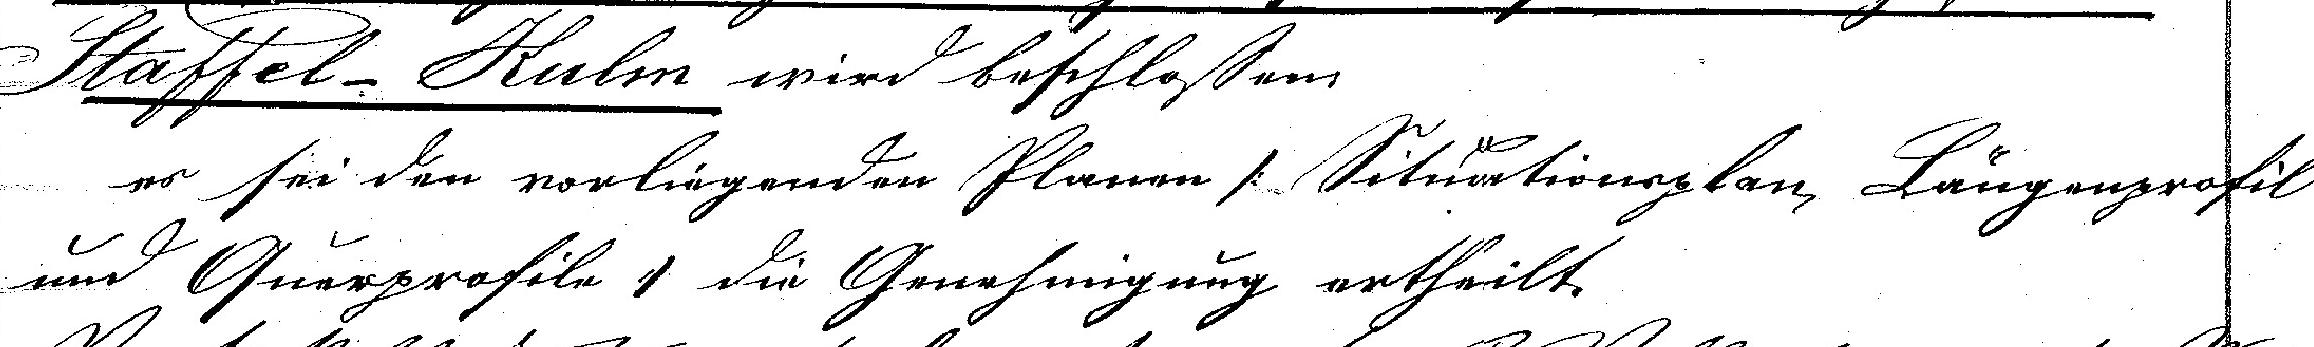 Staffel-Kulm wird beschlossen,
es sei den vorliegenden Planen /: Situationsplan, Längenprofil
und Querprofile :/ die Genehmigung ertheilt.